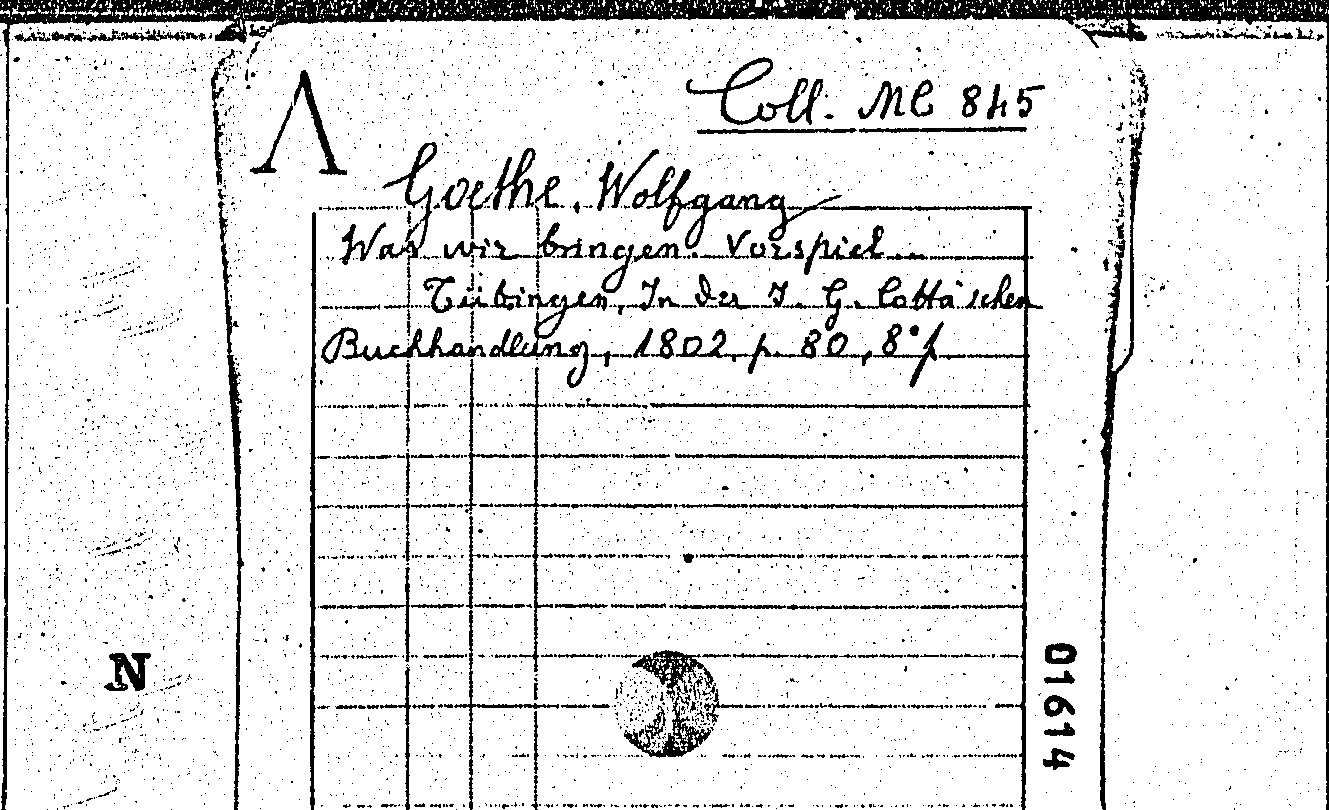 Λ
Coll. MC 845
Goethe, Wolfgang
Was wir bringen. Vorspiel...
Tübingen, In der J. G. Cotta'schen
Buchhandlung, 1802, p. 80, 8°
N
01614